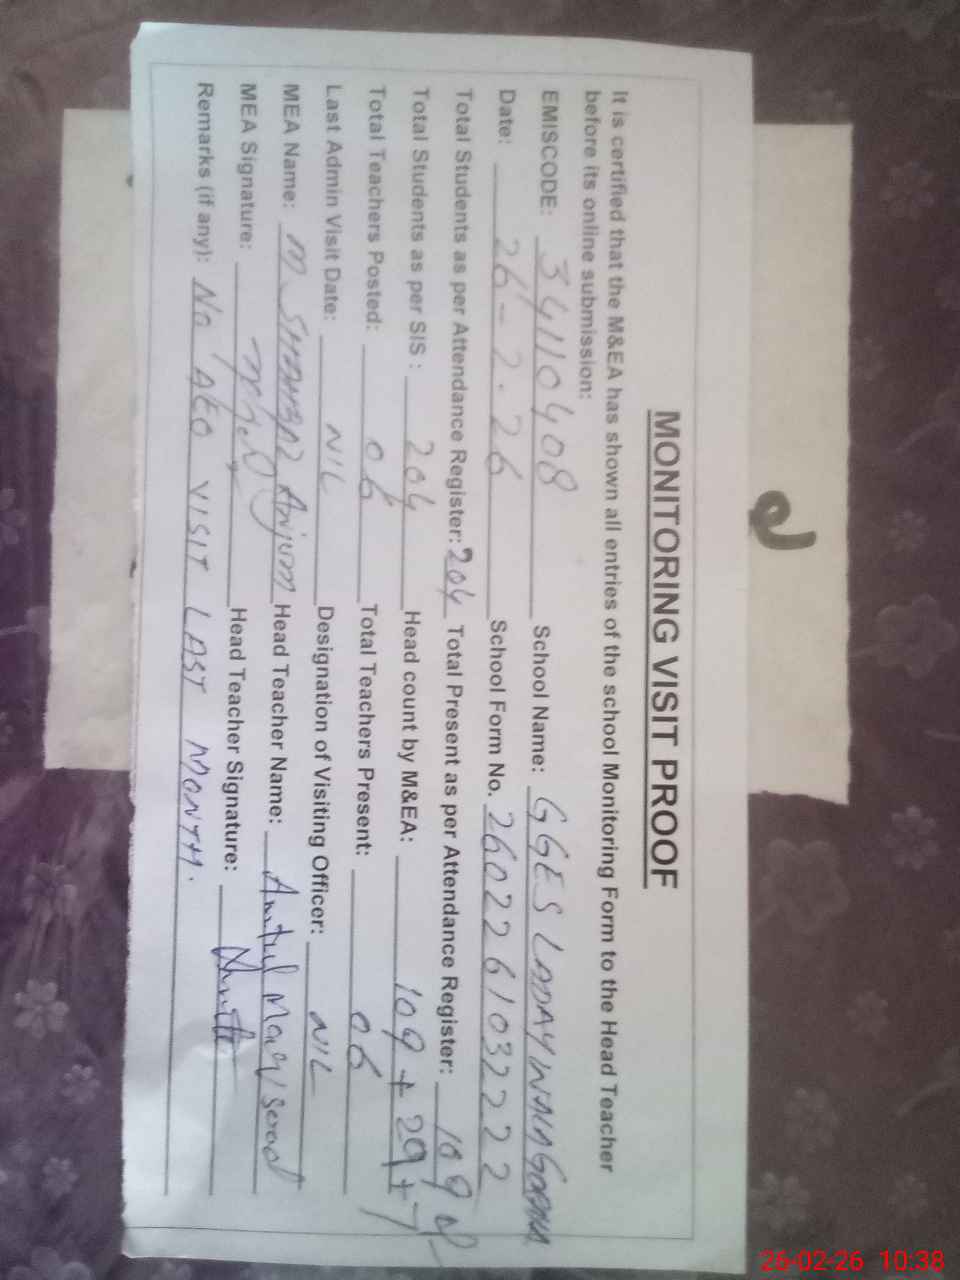 MONITORING VISIT PROOF
It is certified that the M&EA has shown all entries of the school Monitoring Form to the Head Teacher
before its online submission:
EMISCODE: 34110408 School Name: GGES LADAYWALA GORAYA
Date: 26-2-26 School Form No. 26022610322 2 2
Total Students as per Attendance Register: 204 Total Present as per Attendance Register: 109
Total Students as per SIS : 204 Head count by M&EA: 109 + 29 + 7
Total Teachers Posted: 06 Total Teachers Present: 06
Last Admin Visit Date: NIL Designation of Visiting Officer: NIL
MEA Name: M. Anjum Head Teacher Name:
MEA Signature: Head Teacher Signature:
Remarks (if any): No AEO VISIT LAST MONTH.
26-02-26 10:38